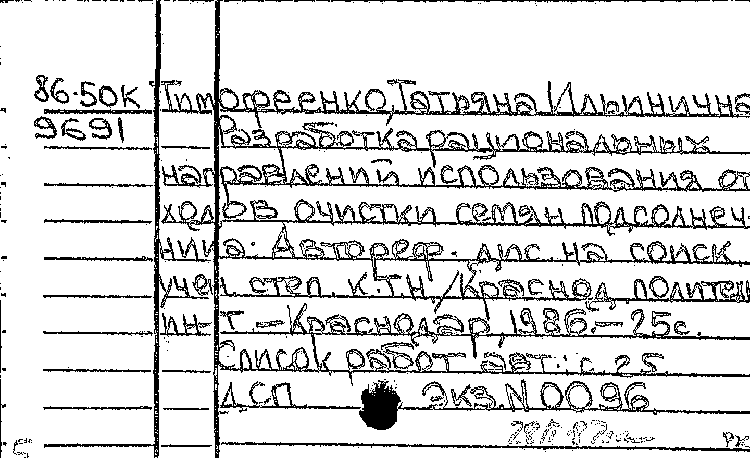 86-50К Тимофеенко, Татьяна Ильинична
9691 Разработка рациональных
направлений использования от
ходов очистки семян подсолнеч-
ника. Автореф. дис. на соиск.
учен степ. к.т.н./Краснод. политех
ин-т. - Краснодар, 1986. - 25с.
Список работ авт.: с. 25
ДСП Экз. N 0096
5